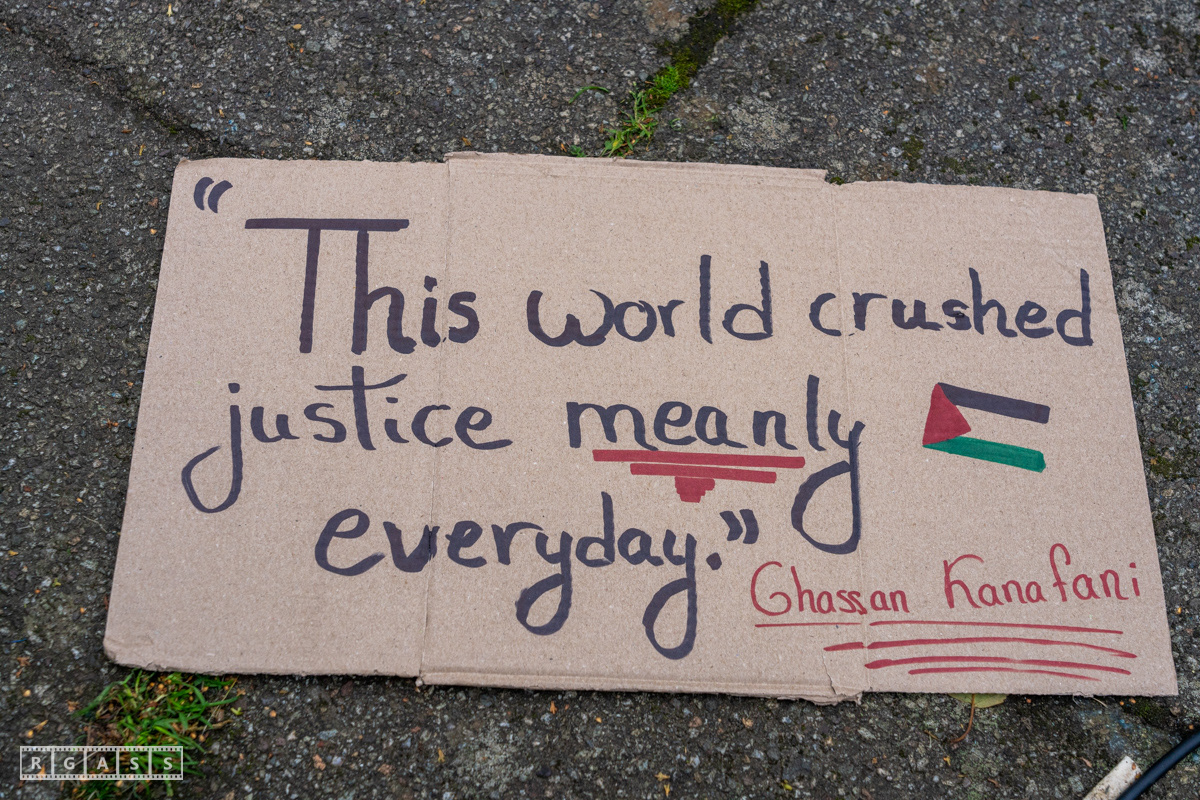 “This world crushed
justice meanly
everyday.”
Ghassan Kanafani
RGASS